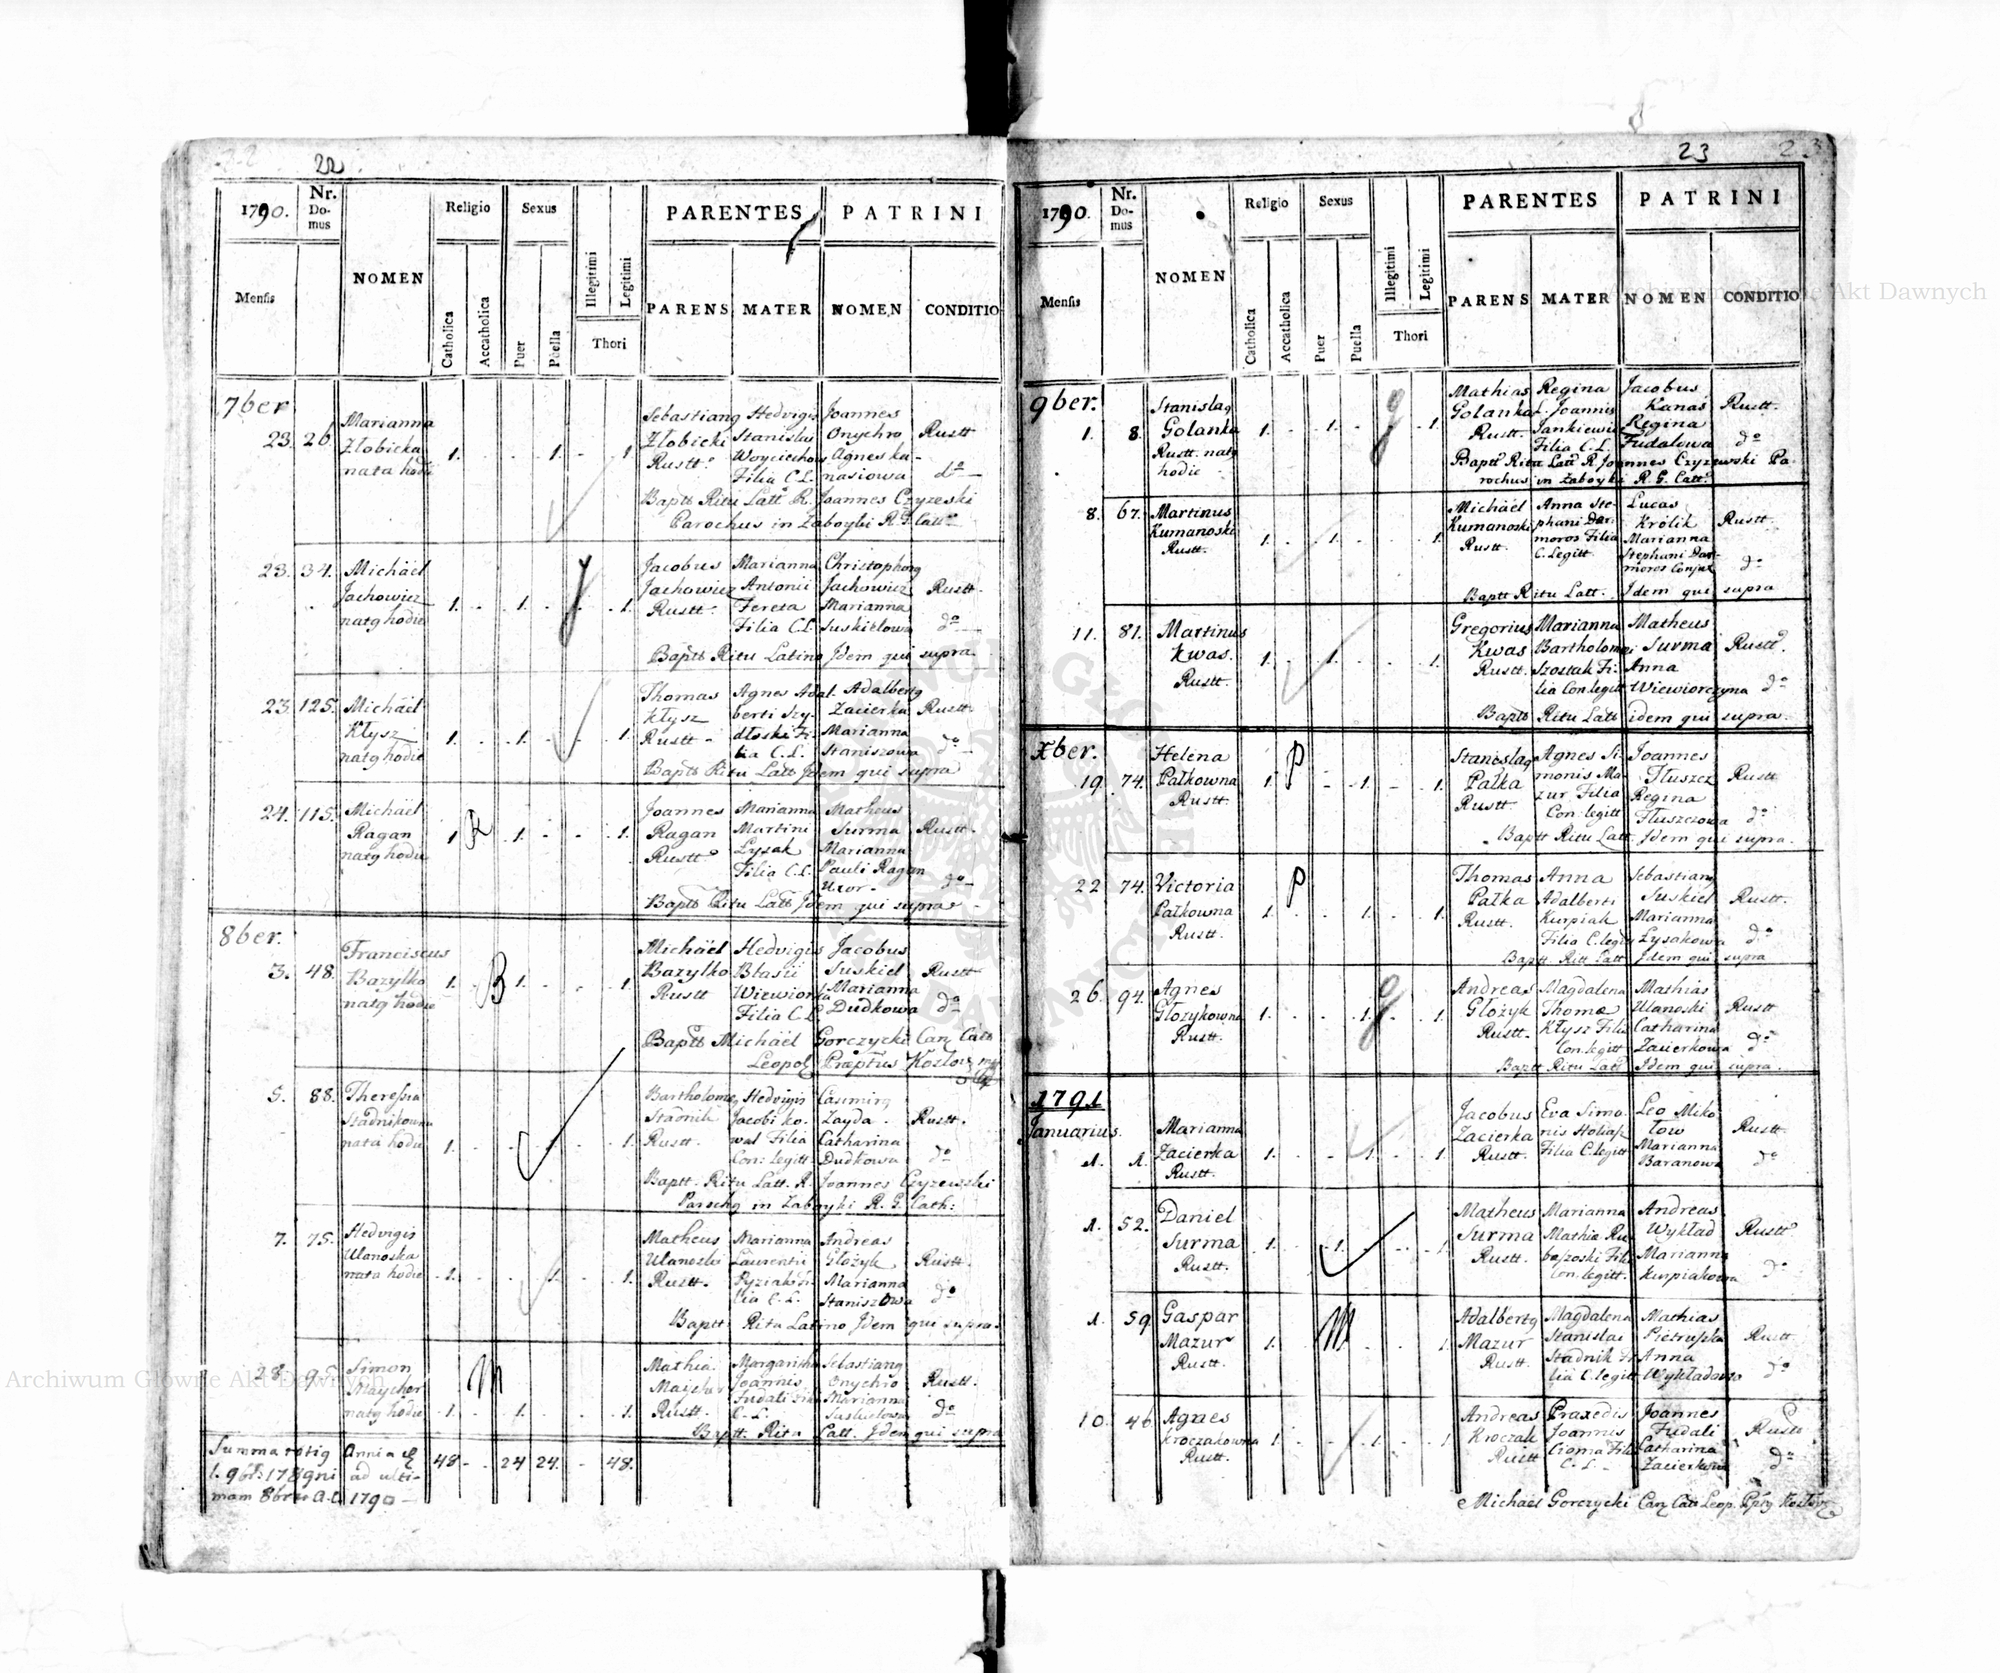 22
1790.
Nr. Do- mus
Religio
Sexus
PARENTES
PATRINI
Mensis
NOMEN
Catholica
Accatholica
Puer
Puella
Illegitimi
Legitimi
Thori
PARENS
MATER
NOMEN
CONDITIO
7ber
23. 26. Marianna Złobicka nata hodie 1. 1. 1.
Sebastianq Złobicki Rustt.
Hedvigis Stanislai Filia C.L.
Joannes Onychro Agnes
Rustt do
Baptt Ritu Latt R. Joannes Czyzeski
Parochus in Zaboyki R. G. Catt
23. 34. Michäel Jachowicz natq hodie 1. 1. 1.
Jacobus Jachowicz Rustt.
Marianna Antonii Fereta Filia C.L.
Christophorq Jachowicz Marianna Suskielowa
Rustt. do
Baptt Ritu Latino Jdem qui supra
23. 125. Michäel Kłysz natq hodie 1. 1. 1.
Thomas Kłysz Rustt
Agnes Adal- berti Szy- dłoski Fi- lia C.L.
Adalbertq Zacierka Marianna Staniszowa
Rustt. do
Baptt Ritu Latt Jdem qui supra
24. 115. Michäel Ragan natq hodie 1 1. 1.
Joannes Ragan Rustt
Marianna Martini Łysak Filia C.L.
Matheus Surma Marianna Pauli Ragan Uxor
Rustt. do
Baptt Ritu Latt Jdem qui supra
8ber.
3. 48. Franciscus Bazylko natq hodie 1. B 1. 1.
Michäel Bazylko Rustt
Hedvigis Blasii Wiewiorka Filia C.L.
Jacobus Suskiel Marianna Dudkowa
Rustt do
Baptt Michäel Gorczycki Can Catt
Leopol
5. 88. Theressia Stadnikowna nata hodie 1. 1.
Stadnik Rustt.
Hedvigis Jacobi Ko- wal Filia Con: legitt
Casimirq Zayda Catharina Dudkowa
Rustt. do
Baptt. Ritu Latt. R. Joannes Czyzewski
Parochq in Zaboyki R. G. Cath:
7. 75. Hedvigis Ulanoska nata hodie 1. 1. 1.
Matheus Ulanoski Rustt.
Marianna Laurentii Fi- lia C. L.
Andreas Głożyk Marianna Staniszowa
Rustt. do
Baptt Ritu Latino Jdem qui supra
28. 95. Simon Maycher natq hodie 1. M 1. 1.
Mathia Maycher Rustt.
Margaritha Joannis Fudali Filia C. L.
Sebastianq Onychro Marianna Suskielowa
Rustt. do
Baptt. Ritu Latt. Jdem qui supra
Summa totiq Anni a
1. 9br: 1789 ad ulti-
mam 8bris a.c. 1790
48 - - 24 24. - 48.
23
1790.
Nr. Do- mus
Religio
Sexus
PARENTES
PATRINI
Mensis
NOMEN
Catholica
Accatholica
Puer
Puella
Illegitimi
Legitimi
Thori
PARENS
MATER
NOMEN
CONDITIO
9ber.
1. 8. Stanislaq Golanka Rustt. natq hodie 1. 1. 1.
Mathias Golanka Rustt.
Regina Joannis Jankiewicz Filia C.L.
Jacobus Kanas Regina Fudalowa
Rustt. do
Baptt Ritu Latt R Joannes Czyzewski Pa-
rochus in Zaboyki R. G. Catt.
8. 67. Martinus Kumanoski Rustt. 1. 1. 1.
Michael Kumanoski Rustt
Anna Ste- phani Filia C. Legitt
Lucas Królik Marianna Stephani Conjux
Rustt do
Baptt Ritu Latt. Jdem qui supra
11. 81. Martinus Kwas. Rustt. 1. 1. 1.
Gregorius Kwas Rustt.
Marianna Bartholomei Szostak Fi- lia Con. legitt
Matheus Surma Anna Wiewiorczyna
Rustt. do
Baptt Ritu Latt idem qui supra.
Xber.
19. 74. Helena Pałkowna Rustt. 1. P 1. 1.
Stanislaq Pałka Rustt
Agnes Si- monis Ma- zur Filia Con. legitt
Joannes Tłuszcz Regina Tłuszczowa
Rustt do
Baptt Ritu Latt Jdem qui supra.
22 74. Victoria Pałkowna Rustt. 1. P 1. 1.
Thomas Pałka Rustt.
Anna Adalberti Kurpiak Filia C. legitt
Sebastianq Suskiel Marianna Łysakowa
Rustt. do
Baptt. Ritt Latt Jdem qui supra
26. 94. Agnes Głożykowna Rustt. 1. 1. 1.
Andreas Głożyk Rustt.
Magdalena Thomæ Kłysz Filia Con. legitt
Mathias Ulanoski Catharina Zacierkowa
Rustt do
Baptt Ritu Latt Jdem qui supra.
1791
Januarius.
1. 1. Marianna Zacierka Rustt. 1. 1. 1.
Jacobus Zacierka Rustt.
Eva Simo- nis Filia C. legitt
Leo Miko łow Marianna Baranowa
Rustt do
1. 52. Daniel Surma Rustt. 1. 1. 1.
Matheus Surma Rustt.
Marianna Mathiæ Filia Con. legitt.
Andreas Wykład Marianna Kurpiakowa
Rustt do
1. 59 Gaspar Mazur Rustt. 1. M 1
Adalbertq Mazur Rustt.
Magdalena Stanislai Stadnik Fi- lia C. legitt
Mathias Pietruszka Anna Wykładowa
Rustt do
10. 46 Agnes Kroczakowna Rustt. 1 1. 1
Andreas Kroczak Rustt
Praxedis Joannis Filia C. L.
Joannes Fudali Catharina Zacierkowa
Rustt do
Michael Gorczycki Can Catt Leop.
Archiwum Główne Akt Dawnych
Archiwum Główne Akt Dawnych